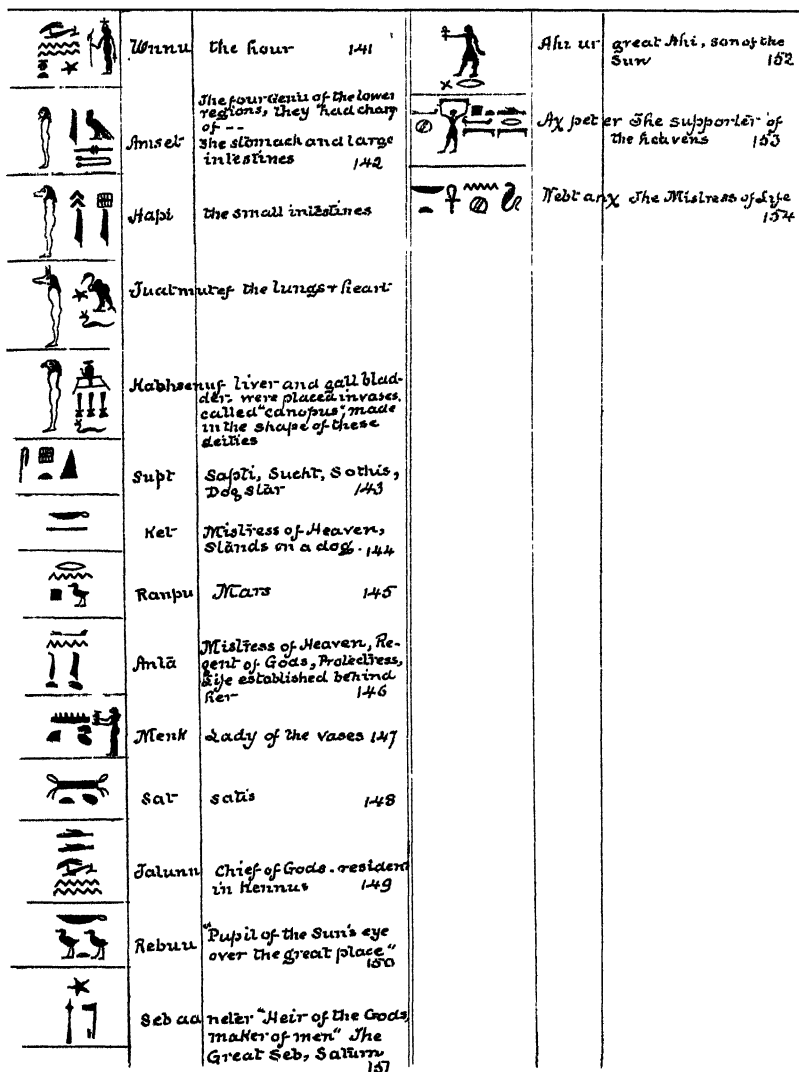 Unnu the hour 141
The four Genii of the lower
regions, they "had charg
of --
Amset the stomach and large
intestines 142
Hapi the small intestines
Tuatmutef the lungs & heart
Kabhsenuf liver and gall blad-
der. were placed in vases.
called "canopus", made
in the shape of these
deities
Supt Sapti, Sucht, Sothis,
Dog star 143
Ket Mistress of Heaven,
Stands on a dog. 144
Ranpu Mars 145
Antā Mistress of Heaven, Re-
gent of Gods, Protectress,
Life established behind
her 146
Menk Lady of the vases 147
Sat satis 148
Tatunu Chief of Gods. resident
in Hennus 149
Rebuu "Pupil of the Sun's eye
over the great place"
150
Seb aa neter "Heir of the Gods,
maker of men" The
Great Seb, Saturn
151
Ahi ur great Ahi, son of the
Sun 152
Ax pet er The supporter of
the heavens 153
Nebt anx The Mistress of Life
154